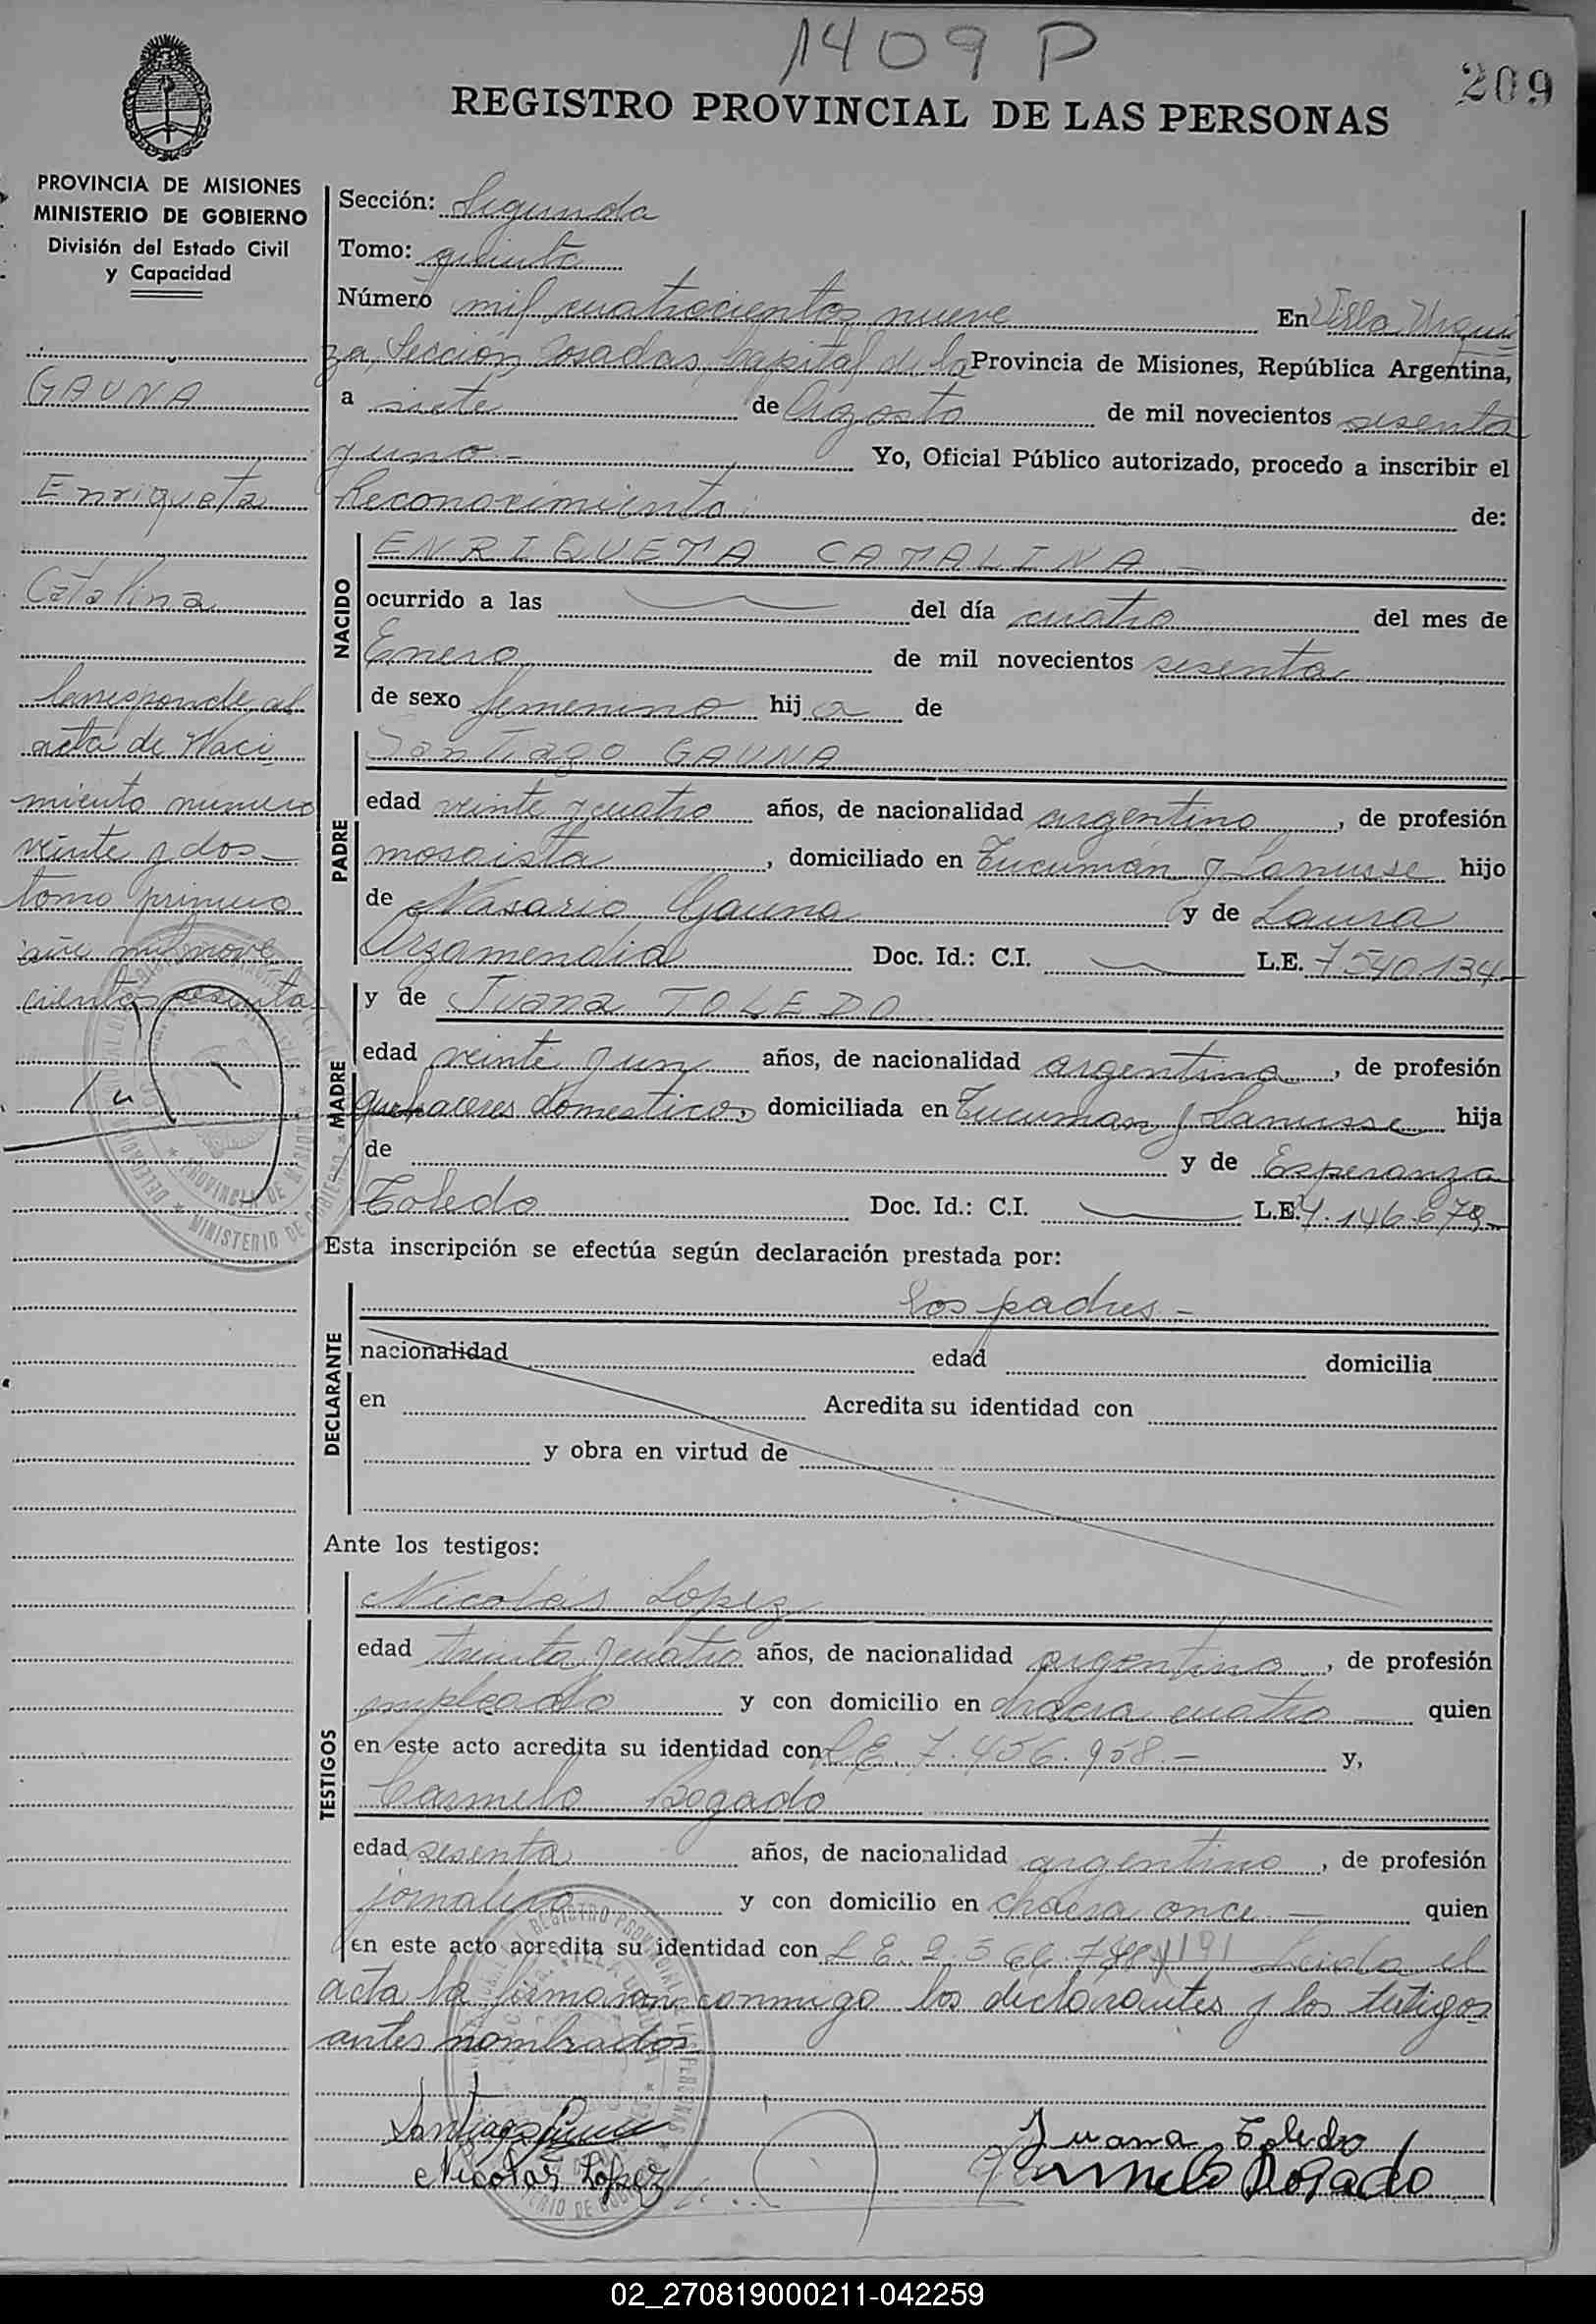 1409 P
209
REGISTRO PROVINCIAL DE LAS PERSONAS
PROVINCIA DE MISIONES
MINISTERIO DE GOBIERNO
División del Estado Civil
y Capacidad
GAUNA
Enriqueta
Catalina
Corresponde al
acta de Naci
miento numero
veinte y dos
tomo primero
año mil nove
cientos sesenta
Sección: Segunda
Tomo: quinto
Número mil cuatrocientos nueve En Villa Urqui
za, Sección Posadas, Capital de la Provincia de Misiones, República Argentina,
a siete de Agosto de mil novecientos sesenta
y uno - Yo, Oficial Público autorizado, procedo a inscribir el
Reconocimiento de:
NACIDO
ENRIQUETA CATALINA -
ocurrido a las del día cuatro del mes de
Enero de mil novecientos sesenta
de sexo femenino hija de
PADRE
Santiago GAUNA
edad veinte y cuatro años, de nacionalidad argentino, de profesión
mosaista, domiciliado en Tucumán y Lanusse hijo
de Nasario Gauna y de Laura
Arzamendia Doc. Id.: C.I. L.E. 7540134
MADRE
y de Juana TOLEDO
edad veinte y un años, de nacionalidad argentina, de profesión
quehaceres domesticos, domiciliada en Tucuman y Lanusse hija
de y de Esperanza
Toledo Doc. Id.: C.I. L.E. 4.146.678
Esta inscripción se efectúa según declaración prestada por:
DECLARANTE
los padres -
nacionalidad edad domicilia
en Acredita su identidad con
y obra en virtud de
Ante los testigos:
TESTIGOS
Nicolás Lopez
edad treinta y cuatro años, de nacionalidad argentino, de profesión
empleado y con domicilio en chacra cuatro quien
en este acto acredita su identidad con L.E. 7.456.958 - y,
Carmelo Bogado
edad sesenta años, de nacionalidad argentino, de profesión
jornalero y con domicilio en chacra once - quien
en este acto acredita su identidad con L.E. 2.5 Leida el
acta la firmaron conmigo los declarantes y los testigos
antes nombrados
Santiago Gauna
Juana Toledo
Nicolas Lopez
Carmelo Bogado
02_270819000211-042259